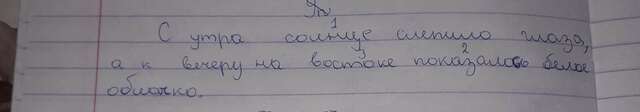 С утра солнце¹ слепило глаза,
а к вечеру на востоке³ показалось² белое
облачко.